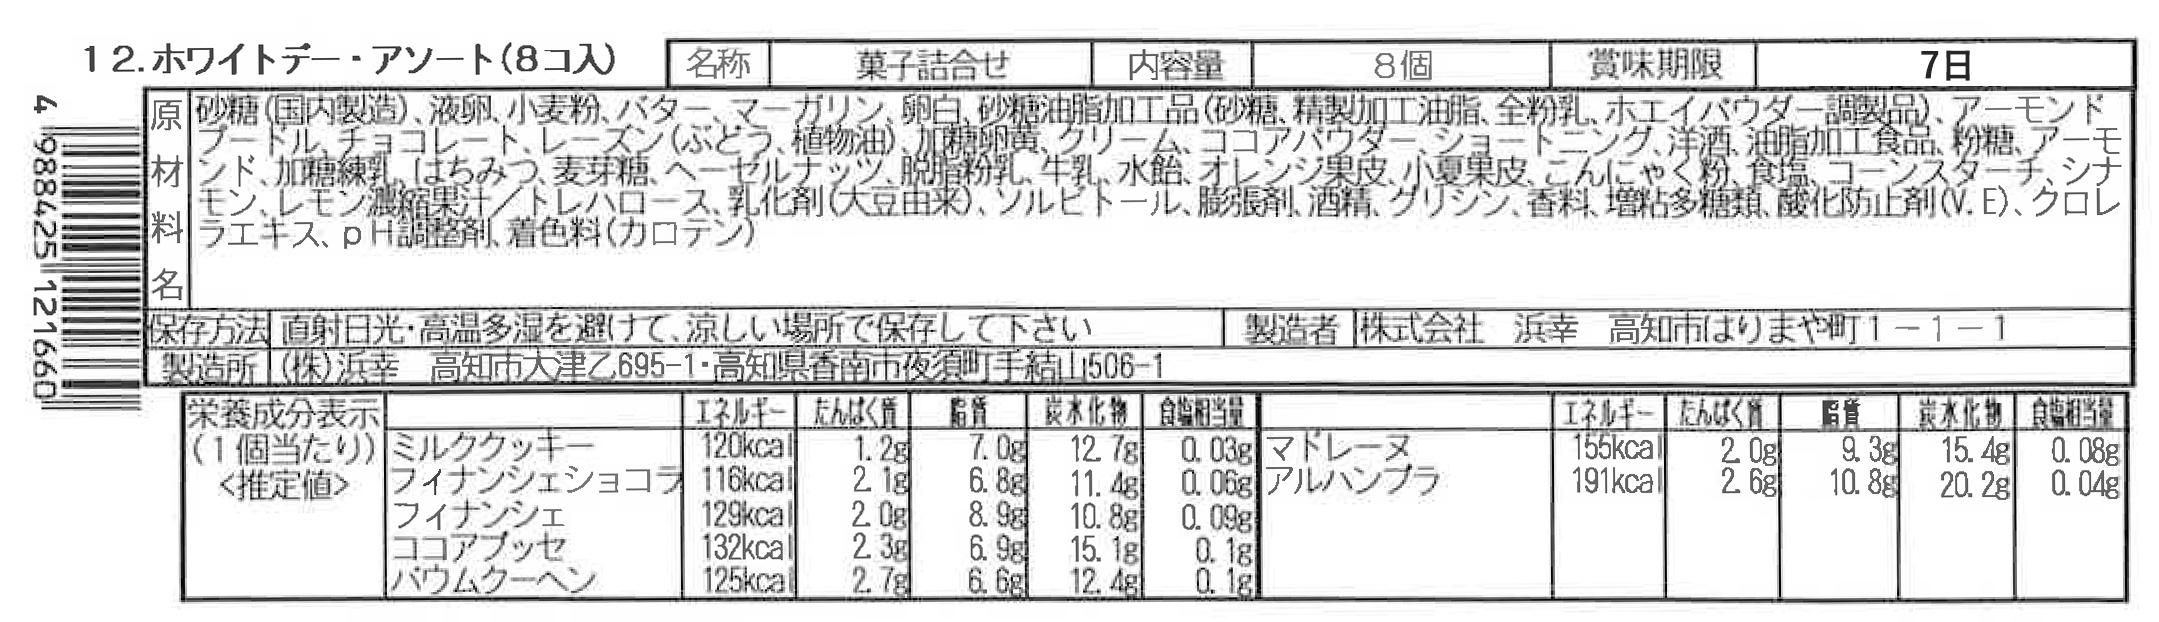 12.ホワイトデー・アソート(8コ入)
名称 菓子詰合せ 内容量 8個 賞味期限 7日
原材料名
砂糖(国内製造)、液卵、小麦粉、バター、マーガリン、卵白、砂糖油脂加工品(砂糖、精製加工油脂、全粉乳、ホエイパウダー調製品)、アーモンド
プードル、チョコレート、レーズン(ぶどう、植物油)、加糖卵黄、クリーム、ココアパウダー、ショートニング、洋酒、油脂加工食品、粉糖、アーモ
ンド、加糖練乳、はちみつ、麦芽糖、ヘーゼルナッツ、脱脂粉乳、牛乳、水飴、オレンジ果皮、小夏果皮、こんにゃく粉、食塩、コーンスターチ、シナ
モン、レモン濃縮果汁/トレハロース、乳化剤(大豆由来)、ソルビトール、膨張剤、酒精、グリシン、香料、増粘多糖類、酸化防止剤(V.E)、クロレ
ラエキス、pH調整剤、着色料(カロテン)
保存方法 直射日光・高温多湿を避けて、涼しい場所で保存して下さい 製造者 株式会社 浜幸 高知市はりまや町1-1-1
製造所 (株)浜幸 高知市大津乙695-1・高知県香南市夜須町手結山506-1
4 988425 121660
栄養成分表示
(1個当たり)
<推定値>
エネルギー たんぱく質 脂質 炭水化物 食塩相当量
ミルククッキー 120kcal 1.2g 7.0g 12.7g 0.03g
フィナンシェショコラ 116kcal 2.1g 6.8g 11.4g 0.06g
フィナンシェ 129kcal 2.0g 8.9g 10.8g 0.09g
ココアブッセ 132kcal 2.3g 6.9g 15.1g 0.1g
バウムクーヘン 125kcal 2.7g 6.6g 12.4g 0.1g
エネルギー たんぱく質 脂質 炭水化物 食塩相当量
マドレーヌ 155kcal 2.0g 9.3g 15.4g 0.08g
アルハンブラ 191kcal 2.6g 10.8g 20.2g 0.04g